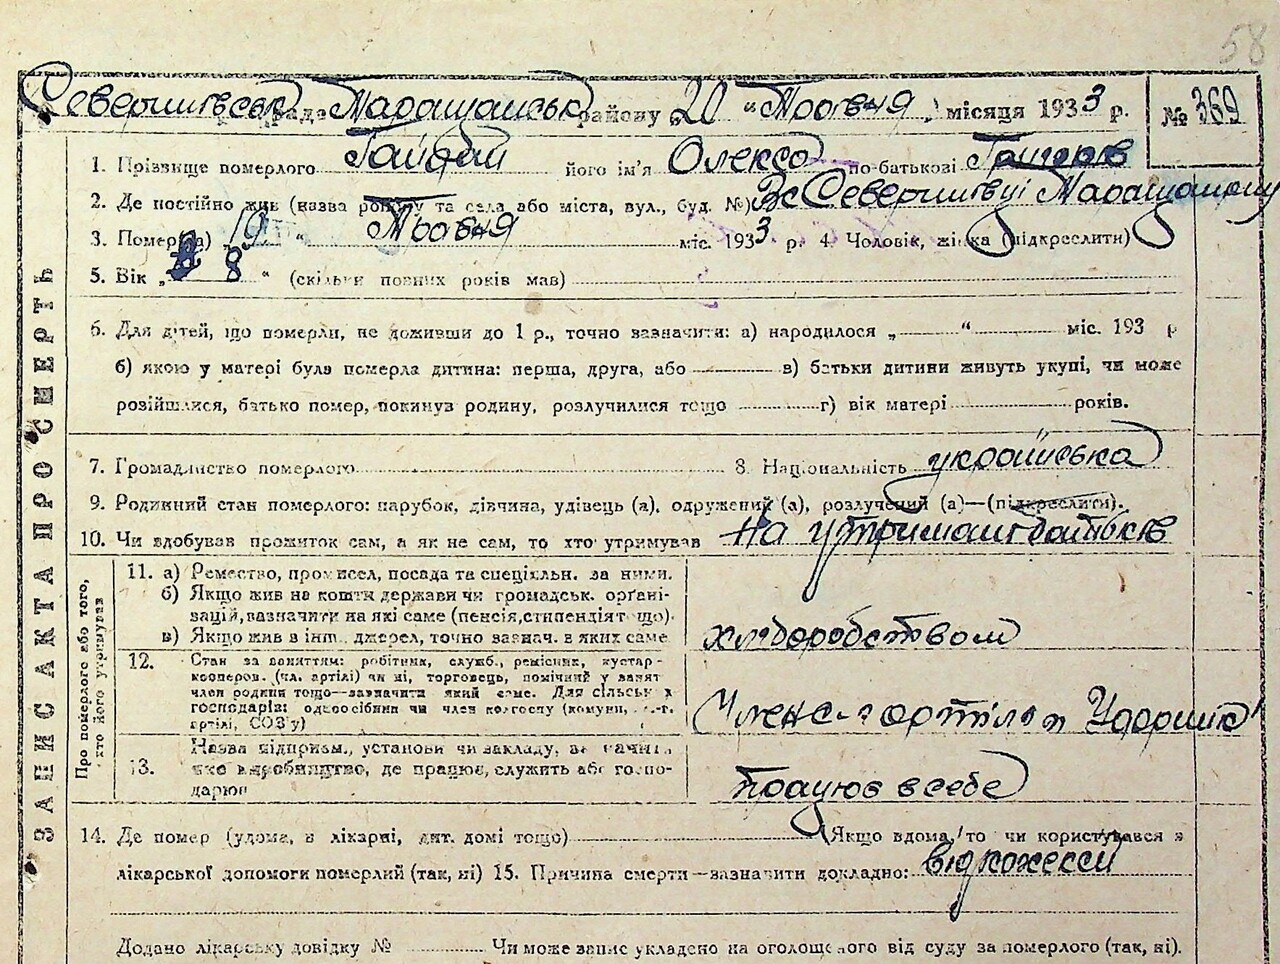 58
Северинівська рада Таращанськ району „20 “ Травня місяця 1933 р. № 369
1. Прізвище померлого його ім'я Олекса по-батькові Григорів
2. Де постійно жив (назва району та села або міста, вул., буд. №) Вс Северинівці Таращанському
3. Помер(ла) „19 “ Травня міс. 1933 р. 4. Чоловік, жінка (підкреслити)
5. Вік „ 8 “ (скільки повних років мав)
6. Для дітей, що померли, не доживши до 1 р., точно зазначити: а) народилося „ “ міс. 193 р
б) якою у матері була померла дитина: перша, друга, або в) батьки дитини живуть укупі, чи може
розійшлися, батько помер, покинув родину, розлучилися тощо г) вік матері років.
7. Громадянство померлого 8. Національність українська
9. Родинний стан померлого: парубок, дівчина, удівець (а), одружений (а), розлучений (а)—(підкреслити).
10. Чи здобував прожиток сам, а як не сам, то хто утримував На утриманні батьків
ЗАПИС АКТА ПРО СМЕРТЬ
Про померлого або того, хто його утримував
11. а) Ремество, промисел, посада та спеціяльн. за ними.
б) Якщо жив на кошти держави чи громадськ. орґані-
зацій, зазначити на які саме (пенсія, стипендія тощо).
в) Якщо жив в інш. джерел, точно зазнач. в яких саме
хліборобством
12. Стан за заняттям: робітник, служб., ремісник, кустар-
кооперов. (чл. артілі) чи ні, торговець, помічний у занят
член родини тощо—зазначити який саме. Для сільськ
господарів: одноосібник чи член колгоспу (комуни,
артілі, СОЗ'у)
Член с-г артілі Ударник
13. Назва підприєм., установи чи закладу, зазначити
яке виробництво, де працює, служить або госпо-
дарює
працює в себе
14. Де помер (удома, в лікарні, дит. домі тощо) (Якщо вдома, то чи користувався з
лікарської допомоги померлий (так, ні) 15. Причина смерти—зазначити докладно: від
Додано лікарську довідку № Чи може запис укладено на оголошеного від суду за померлого (так, ні).